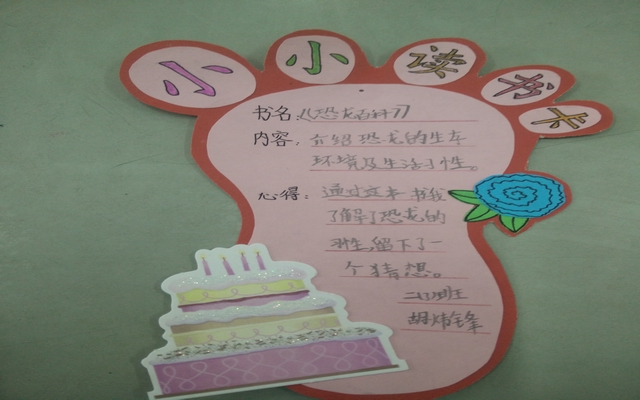 小小读书卡
书名:《恐龙百科》
内容:介绍恐龙的生存
环境及生活习性。
心得:通过这本书我
了解了恐龙的
生,留下了一
个猜想。
班
胡炜锋